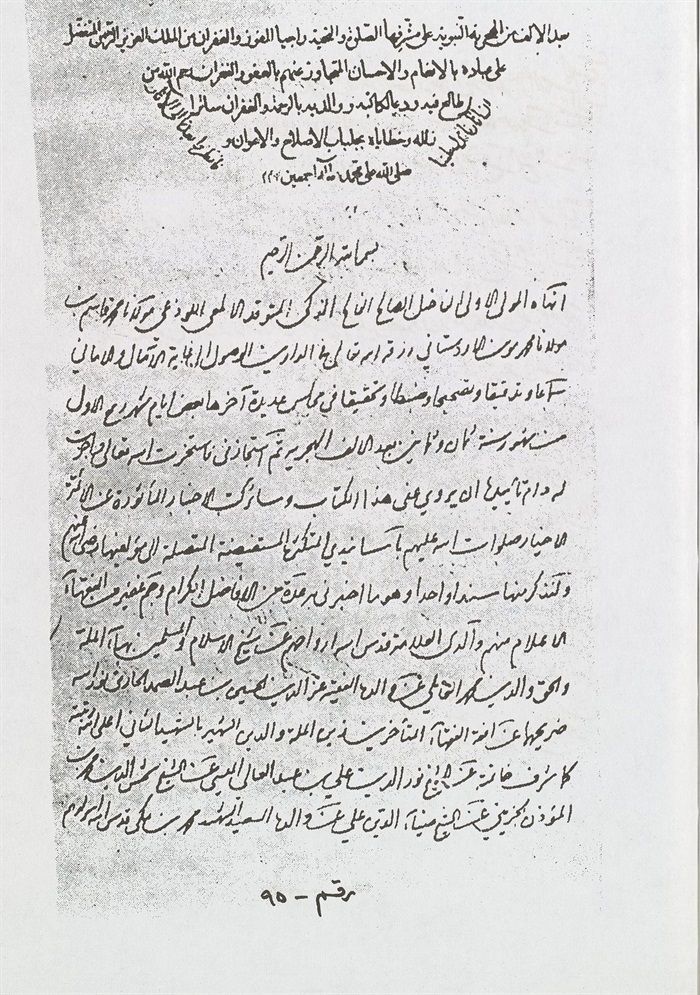 بعد الالف من الهجرية النبوية على مشرفها الصلوة والتحية راجيا للفوز والغفران من الملك العزيز الرحمن المتفضل
على عباده بالانعام والاحسان المتجاوز عنهم بالعفو والغفران رحم الله من
طالع فيه ودعا لكاتبه ووالديه بالرحمة والغفران ساترا
زلله وخطاياه بجلباب الاصلاح والاعوان و
صلى الله على محمد وآله اجمعين
ان آثارنا تدل علينا
فانظروا بعدنا الى الآثار
بسم الله الرحمن الرحيم
انهاه المولى الاولى الفاضل الصالح الفالح الذكي المتوقد الالمعي اللوذعي مولانا محمد قاسم بن
مولانا محمد مومن الاردستاني رزقه الله تعالى في الدارين الوصول الى غاية الآمال والاماني
سماعا وتدقيقا وتصحيحا وضبطا وتحقيقا في مجالس عديدة آخرها بعض ايام شهر ربيع الاول
من شهور سنة ثمان وثمانين بعد الالف الهجرية ثم استجازني فاستخرت الله تعالى واجزت
له دام تاييده ان يروي عني هذا الكتاب وسائر كتب الاخبار المأثورة عن الائمة
الاخيار صلوات الله عليهم بأسانيدي المتكثرة المستفيضة المتصلة الى مؤلفيها رضي الله عنهم
ولنذكر منها سندا واحدا وهو ما اخبرني به عدة من الافاضل الكرام وجم غفير من الفقهاء
الاعلام منهم والدي العلامة قدس الله ارواحهم عن شيخ الاسلام والمسلمين بهاء الملة
والحق والدين محمد العاملي عن والده الفقيه عز الدين الحسين بن عبد الصمد الحارثي نور الله
ضريحهما عن افقه الفقهاء المتأخرين زين الملة والدين الشهير بالشهيد الثاني اعلى الله رتبته
كما شرف خاتمته عن الشيخ نور الدين علي بن عبد العالي الميسي عن الشيخ شمس الدين محمد بن
المؤذن الجزيني عن الشيخ ضياء الدين علي عن والده السعيد الشهيد محمد بن مكي قدس الله اسرارهم
رقم - ٩٥